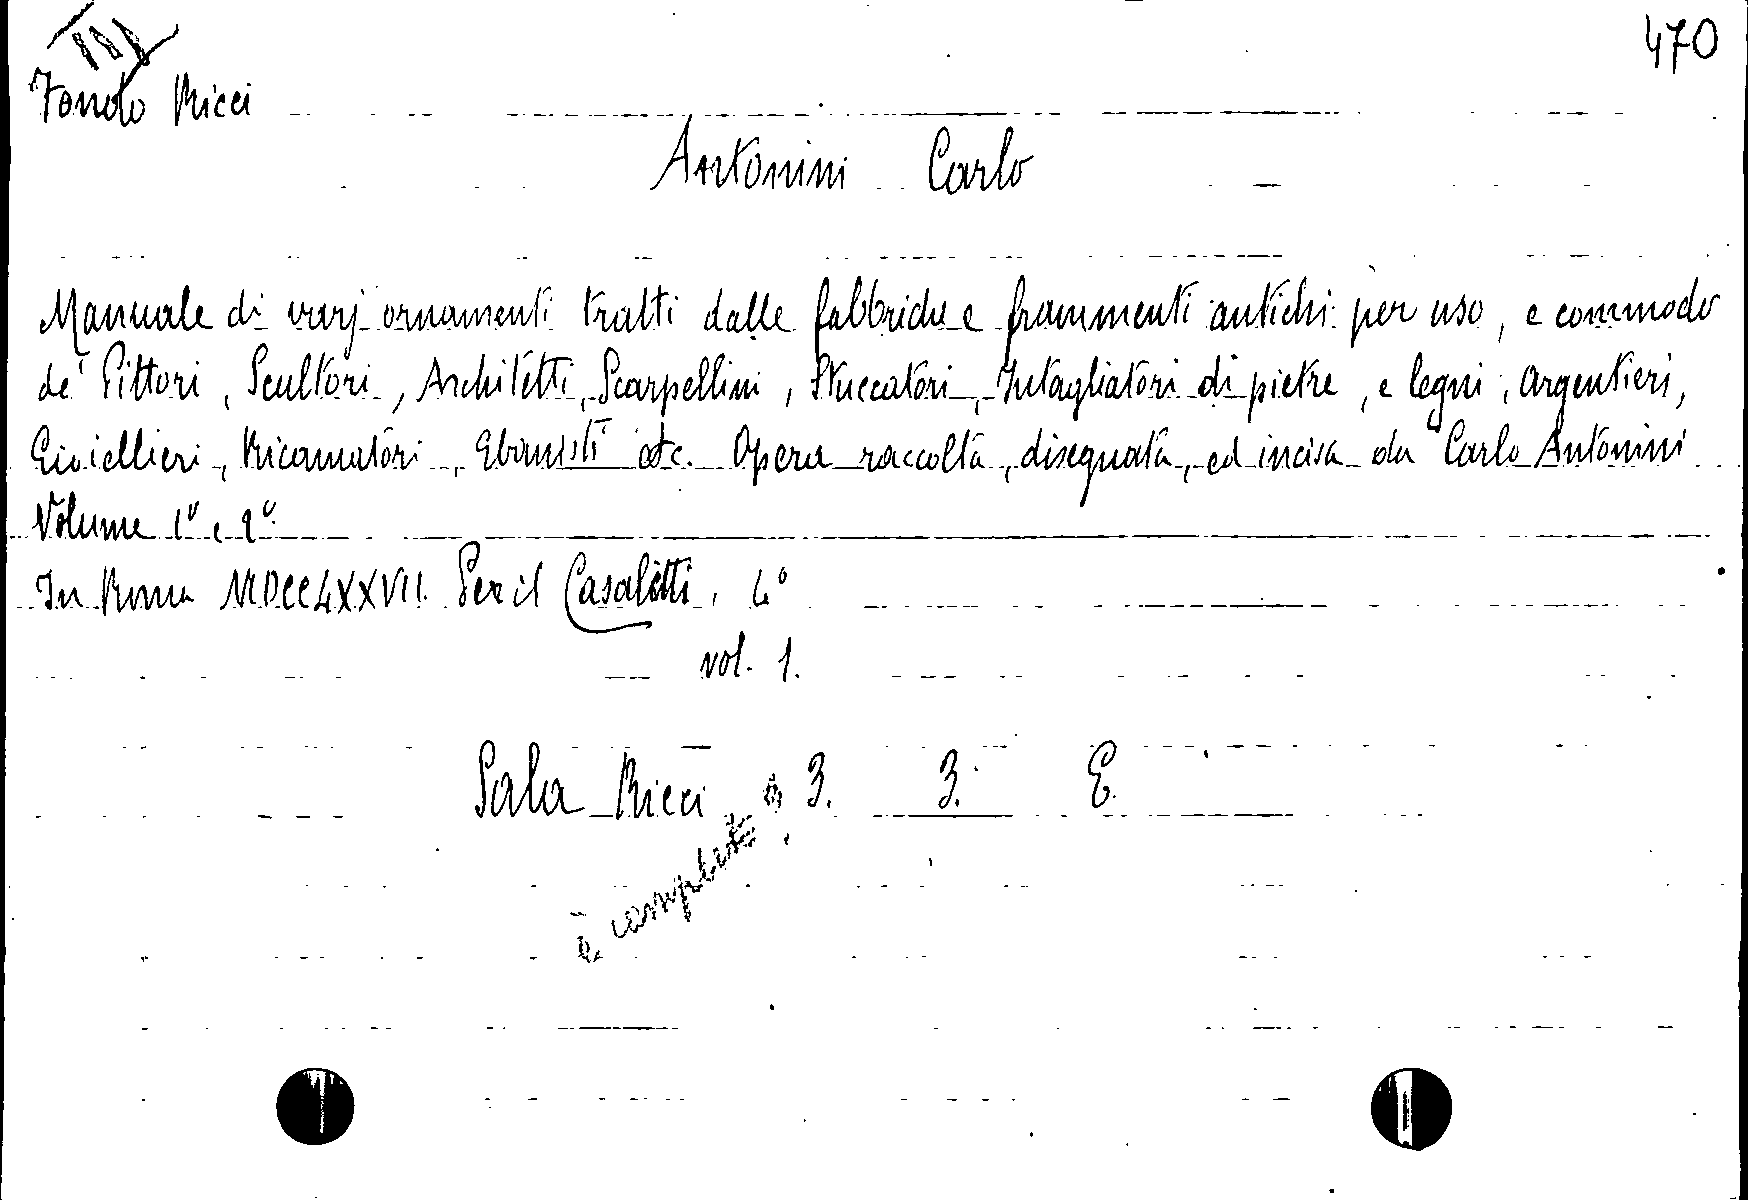 470
Fondo Ricci
Antonini Carlo
Manuale di varj ornamenti tratti dalle fabbriche e frammenti antichi per uso, e commodo
de' Pittori, Scultori, Architetti, Scarpellini, Stuccatori, Intagliatori di pietre, e legni, Argentieri,
Gioiellieri, Ricamatori, Ebanisti etc. Opera raccolta, disegnata, ed incisa da Carlo Antonini
Volume 1º e 2º.
In Roma MDCCLXXVII. Per il Casaletti, 4º
vol. 1.
Sala Ricci 3. 3. E.
è completo